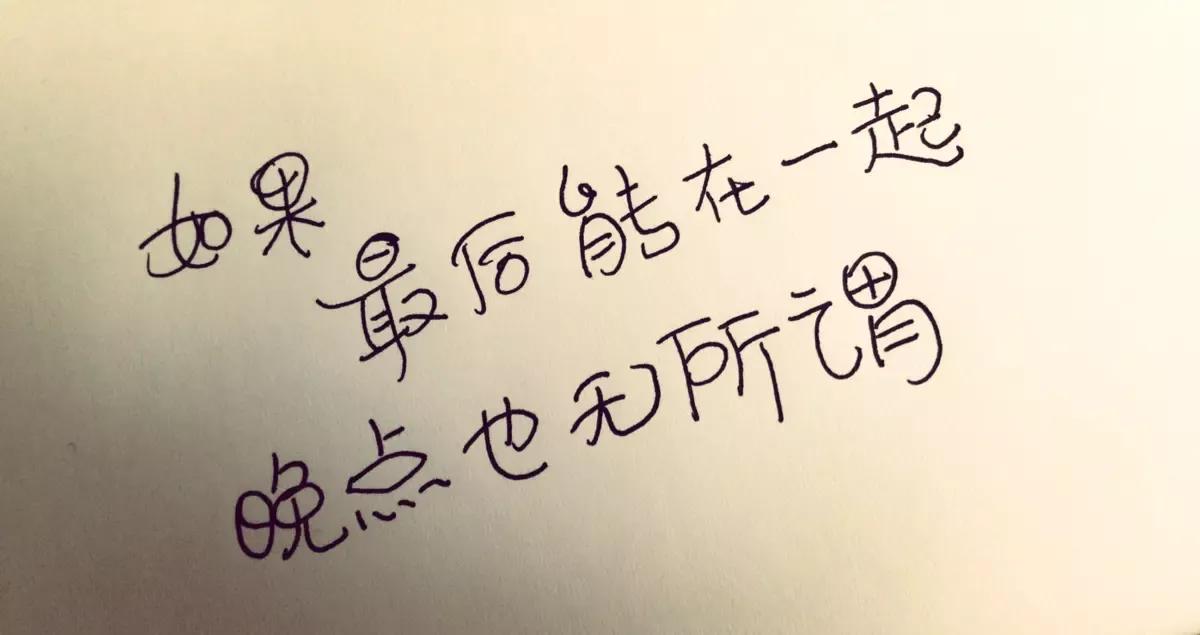 如果最后能在一起
晚点也无所谓